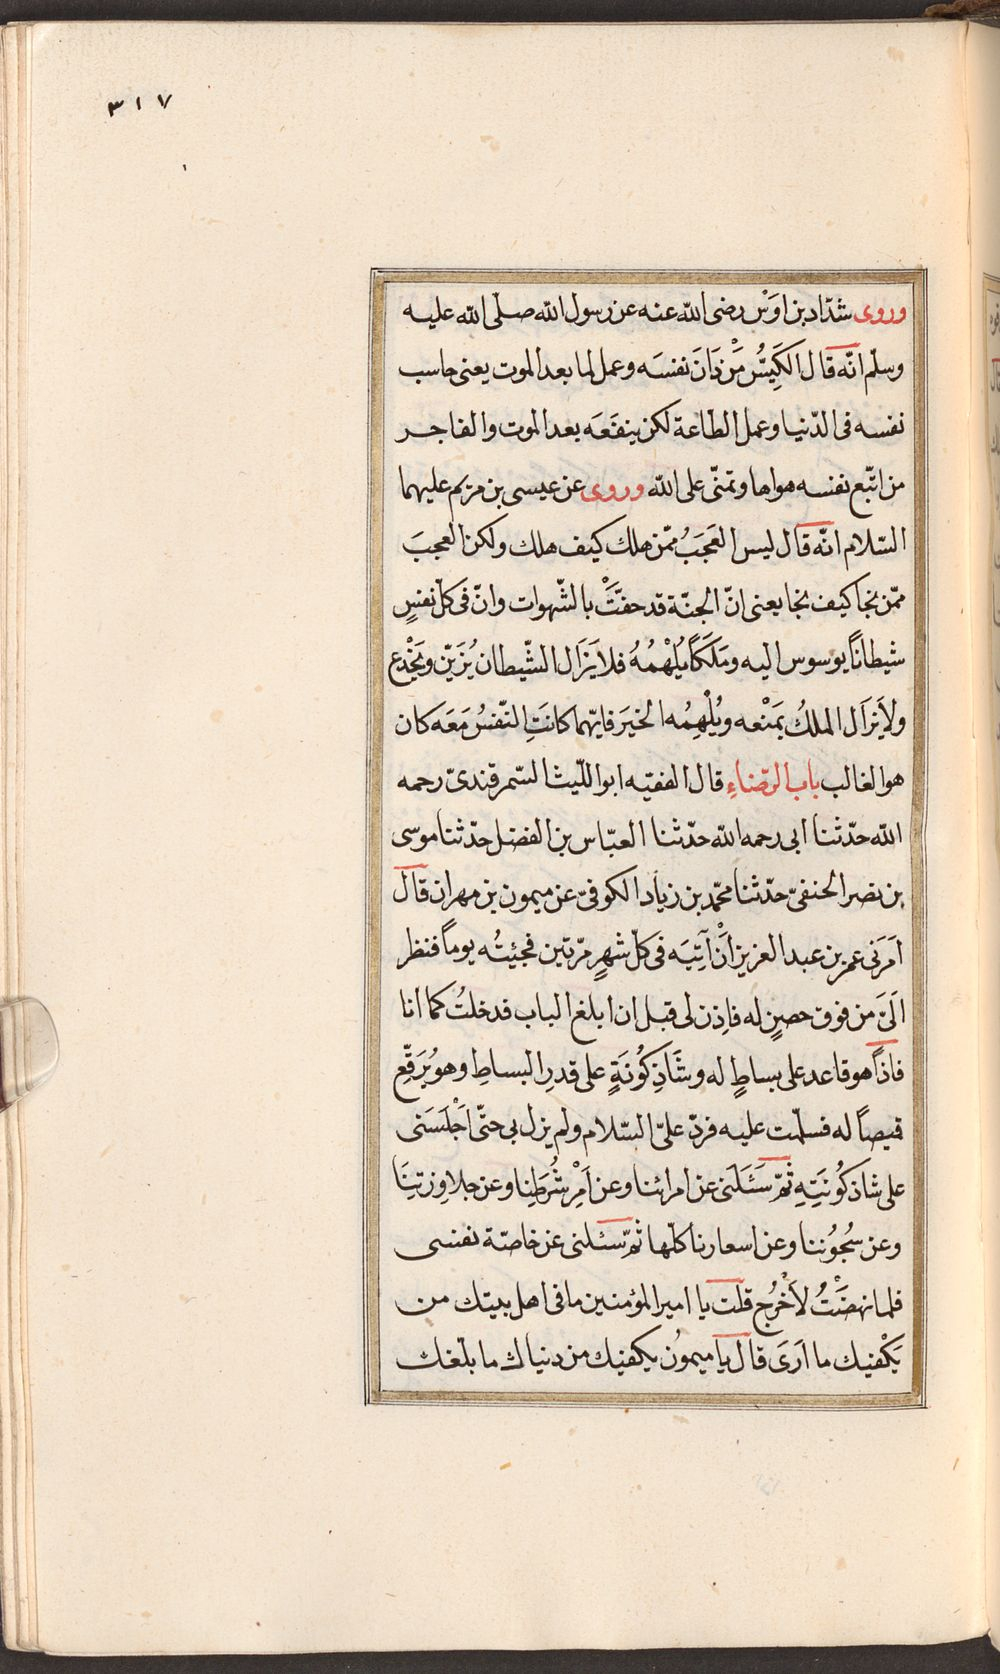 ٣١٧
وروى شدّاد بن اوَسْ رضى الله عنه عن رسول الله صلّى الله عليه
وسلّم انّه قال الكَيِّسُ مَنْ دَانَ نفسَه وعمل لما بعد الموت يعنى حاسب
نفسه فى الدّنيا وعمل الطّاعة لكن ينفَعَه بعد الموت والفاجر
من اتّبع نفسه هواها وتمنّى على الله وروى عن عيسى بن مريم عليهما
السّلام انّه قال ليس العَجَبُ ممّن هلك كيف هلك ولكن العجبَ
ممّن نجا كيف نجا يعنى انّ الجنّة قد حفّتَْ بالشّهوات وانّ فى كلّ نفسٍ
شيطانًا يوسوس اليه ومَلَكًا يُلْهْمُهُ فلا يَزَال الشّيطان يُزَيّن ويَخْدع
ولا يَزَال الملكُ يَمَنْعه ويُلْهِمُه الخيَر فايّهما كانَتِ النّفسُ مَعَه كان
هو الغالب باب الرّضاءِ قال الفقيّه ابو اللّيث السّمرقندىّ رحمه
الله حدّثنا ابى رحمه الله حدّثنا العبّاس بن الفضل حدّثنا موسى
بن نصر الحنفىّ حدّثنا محمّد بن زياد الكوفىّ عن ميمون بن مهران قال
اَمَرَنى عمر بن عبد العزيز اَنْ آتِيَه فى كلّ شهرٍ مرّتين فجئيتُه يوماً فنظر
الَىّ من فوق حصينٍ له فاِذن لى قبل ان ابلغ الباب فدخلتُ كما انا
فاذاً هو قاعد على بساطٍ له وشَاذِكُونَةٍ على قدرِ البساطِ وهو يُرَقِّع
قميصاً له فسلّمت عليه فردّ علىّ السّلام ولم يزل بى حتّى اَجْلَسَنى
على شاذكُونَيَتِهِ ثمّ سَئَلَنى عن امرائنا وعن اَمِرْ شُرَطِنا وعن جلاوِزتِنَا
وعن سُجُوُننا وعن اسعارنا كلّها ثمّ سئلنى عن خاصّة نفسى
فلما نهضَْتُ لاَخْرُج قلت يا امير المؤمنين ما فى اهل بيتك من
يَكْفيك ما اَرَى قال يا ميمونُ يكفيك من دنياك ما بلّغك